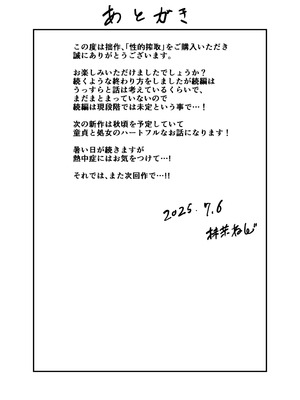 あとがき
この度は拙作、「性的搾取」をご購入いただき
誠にありがとうございます。
お楽しみいただけましたでしょうか？
続くような終わり方をしましたが続編は
うっすらと話は考えているくらいで、
まだまとまっていないので
続編は現段階では未定という事で…！
次の新作は秋頃を予定していて
童貞と処女のハートフルなお話になります！
暑い日が続きますが
熱中症にはお気をつけて…！
それでは、また次回作で…！！
2025. 7.6